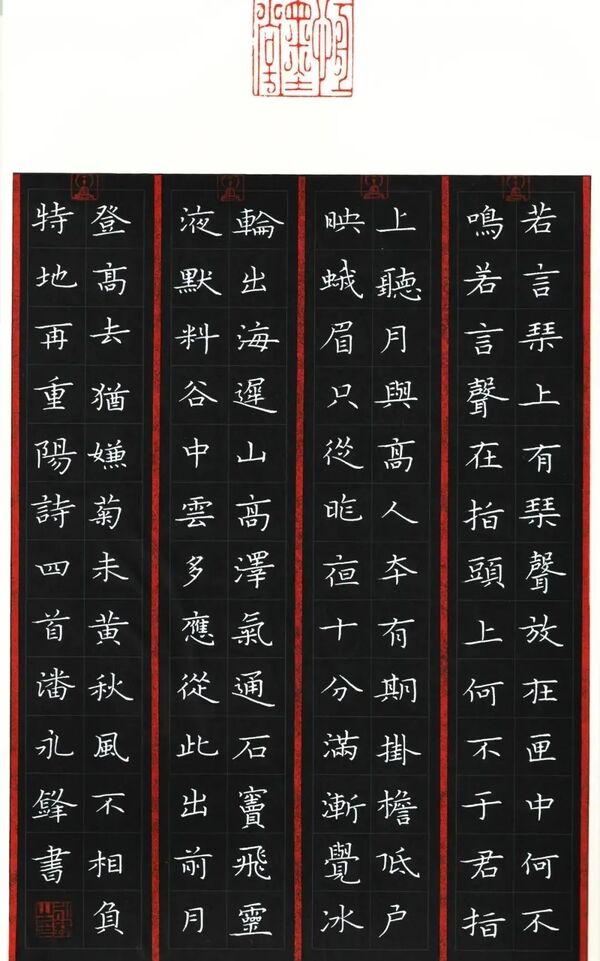 若言琹上有琹聲放在匣中何不
鳴若言聲在指頭上何不于君指
上聽月與髙人夲有期掛檐低戶
映蛾眉只從昨夜十分滿漸覺冰
輪出海遲山髙澤氣通石竇飛靈
液默料谷中雲多應從此出前月
登髙去猶嫌菊未黃秋風不相負
特地再重陽詩四首潘永鋒書